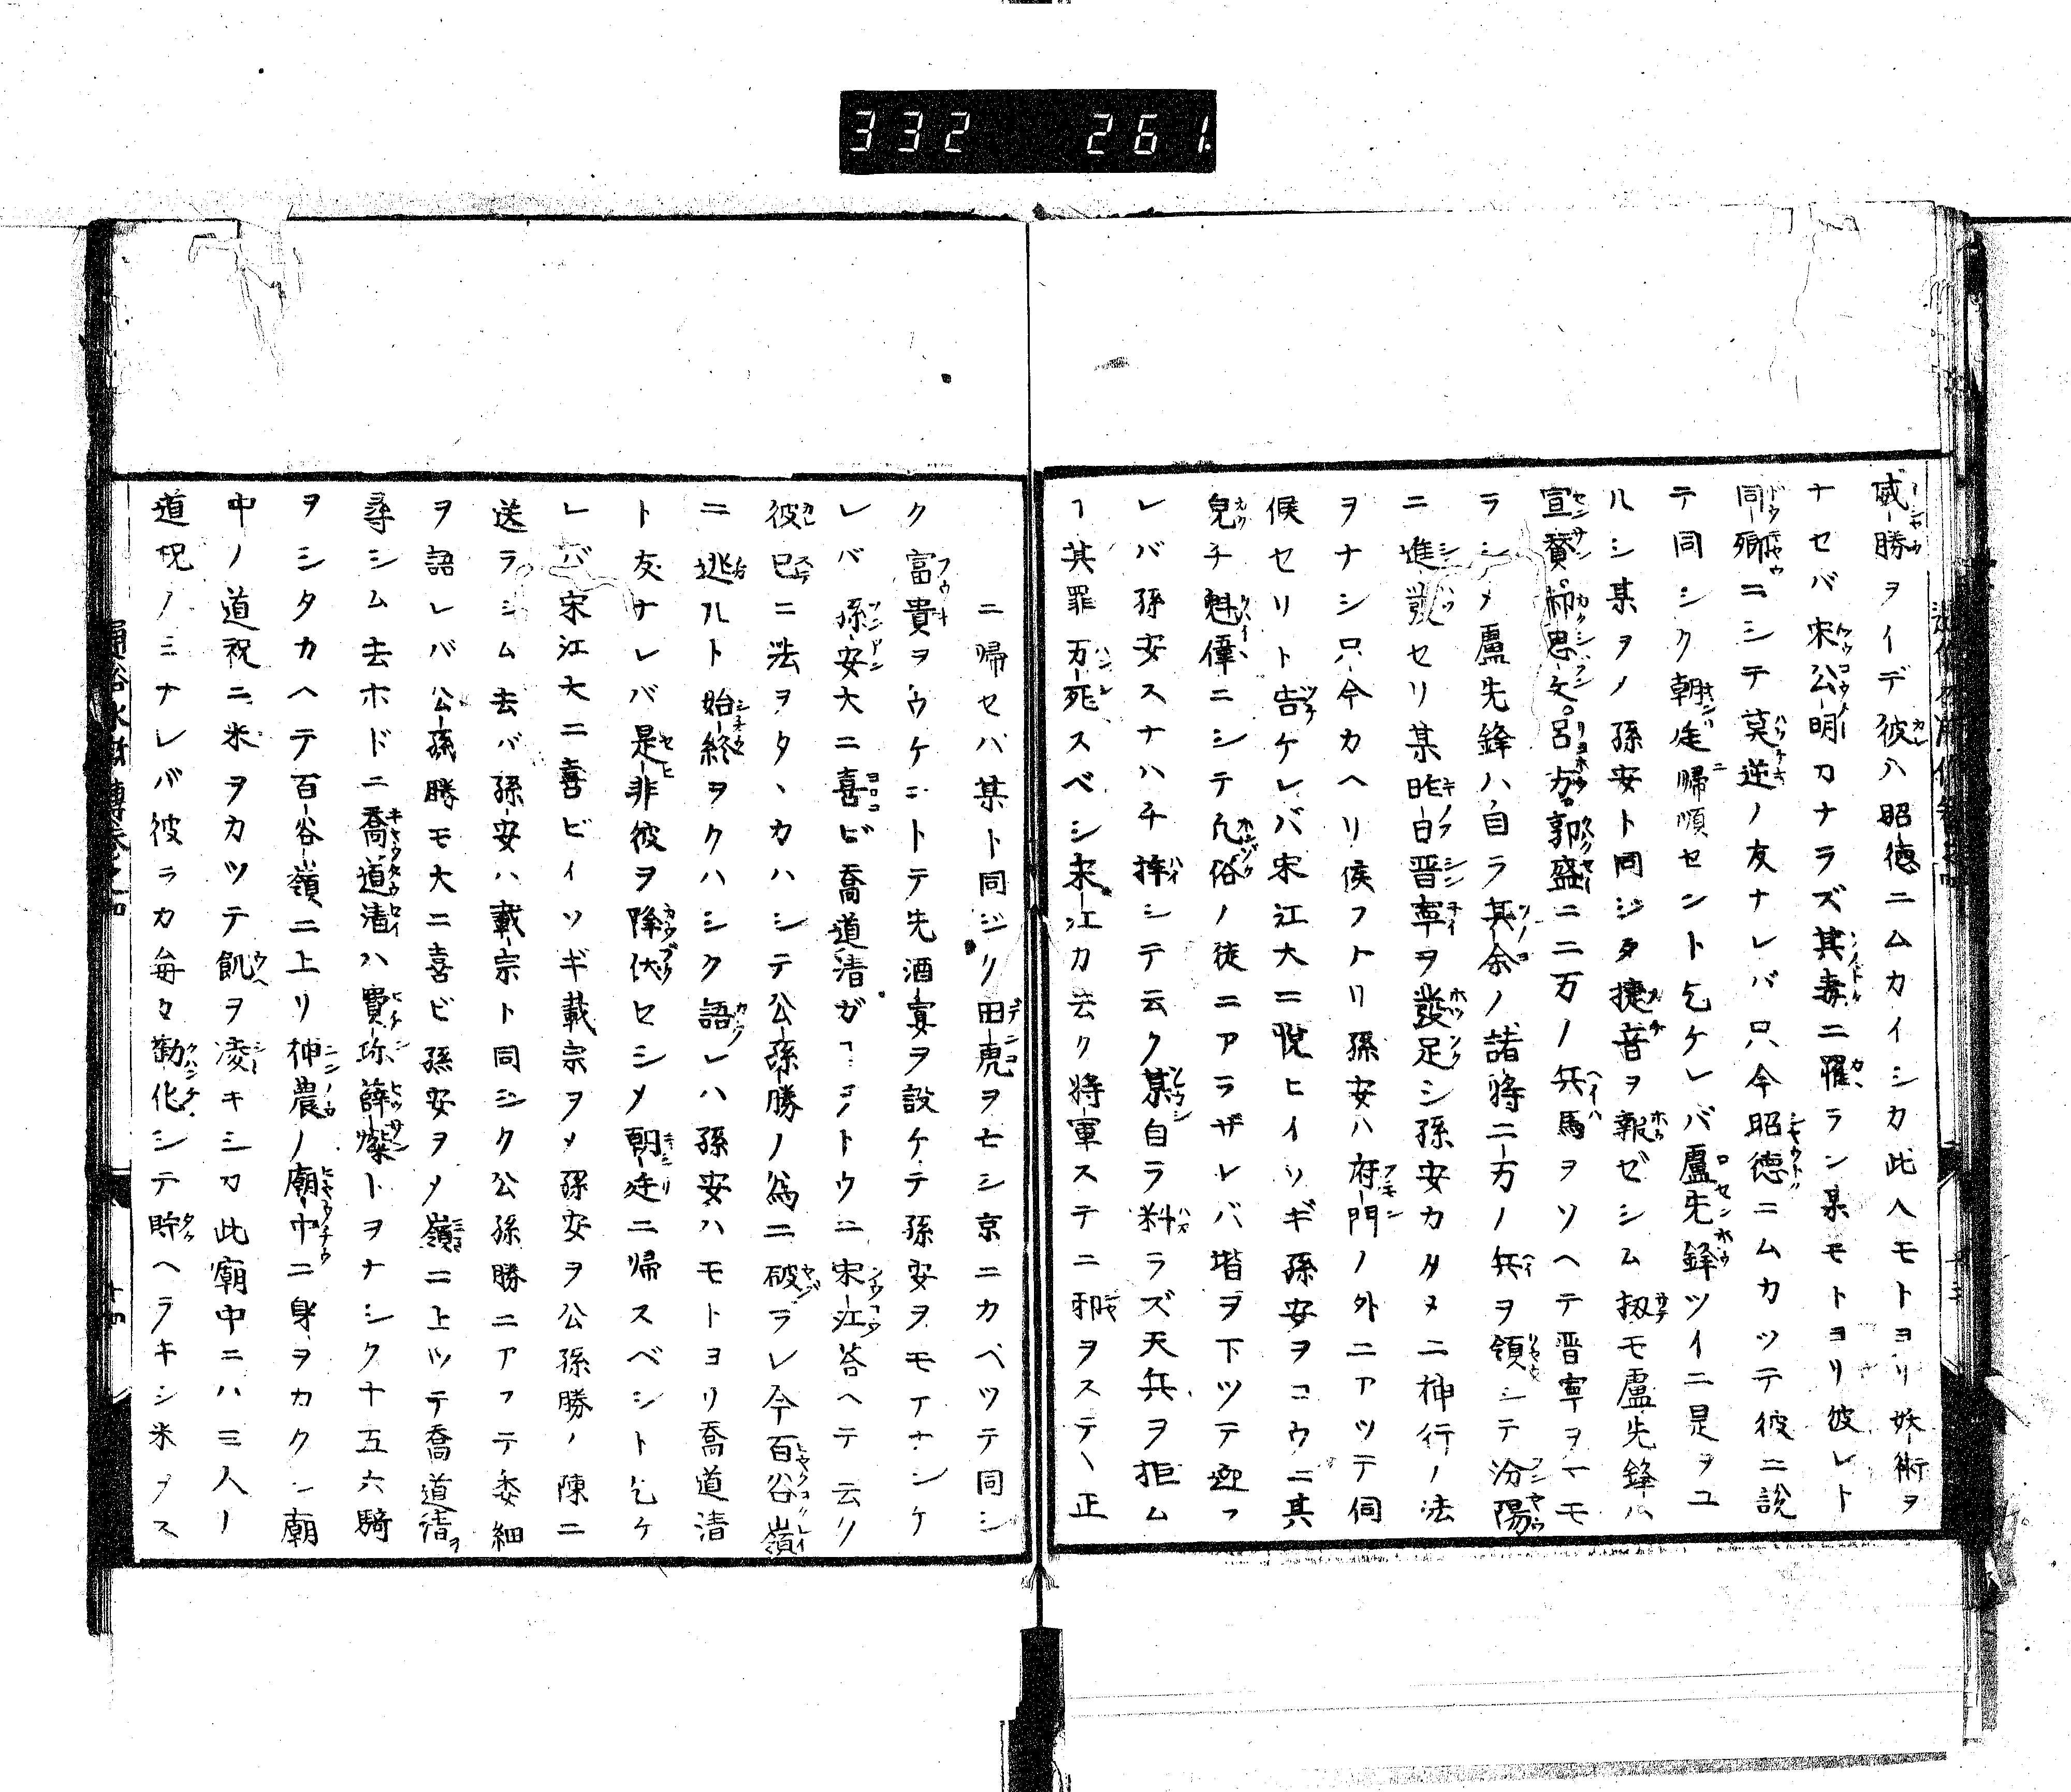 332 261.
威勝ヲイデ彼ハ昭徳ニムカイシカ此ヘモトヨリ妖術ヲ
ナセバ宋公明カナラズ其毒ニ罹ラン某モトヨリ彼レト
同郷ニシテ莫逆ノ友ナレバ只今昭徳ニムカツテ彼ニ説
テ同シク朝廷帰順セント乞ケレバ盧先鋒ツイニ是ヲユ
ルシ某ヲノ孫安ト同ジク捷音ヲ報ゼシム扨モ盧先鋒ハ
宣賛。郝思文。呂方。郭盛ニ二万ノ兵馬ヲソヘテ晋寧ヲマモ
ラシメ盧先鋒ハ自ラ其余ノ諸将ニ一万ノ兵ヲ領シテ汾陽
ニ進發セリ某昨日晋寧ヲ發足シ孫安カタメニ神行ノ法
ヲナシ只今カヘリ侯フトリ孫安ハ府門ノ外ニアツテ伺
候セリト告ケレバ宋江大ニ悦ヒイソギ孫安ヲコウニ其
皃チ魁偉ニシテ凡俗ノ徒ニアラザレバ堦ヲ下ツテ迎フ
レバ孫安スナハチ拝シテ云ク某自ラ料ラズ天兵ヲ拒ム
ヿ其罪万死スベシ宋江カ云ク将軍ステニ邪ヲステヽ正
ニ帰セバ某ト同ジリ田虎ヲ七シ京ニカヘツテ同シ
ク富貴ヲウケントテ先酒宴ヲ設ケテ孫安ヲモテナシケ
レバ孫安大ニ喜ビ喬道清ガヿヲトウニ宋江荅ヘテ云リ
彼已ニ法ヲタヽカハシテ公孫勝ノ為ニ破ラレ今百谷嶺
ニ逃ルト始終ヲクハシク語レハ孫安ハモトヨリ喬道清
ト友ナレバ是非彼ヲ降伏セシメ朝廷ニ帰スベシト乞ケ
レバ宋江大ニ喜ビイソギ載宗ヲメ孫安ヲ公孫勝ノ陳ニ
送ラシム去バ孫安ハ載宗ト同シク公孫勝ニアフテ委細
ヲ語レバ公孫勝モ大ニ喜ビ孫安ヲメ嶺ニ上ツテ喬道清ヲ
尋シム去ホドニ喬道清ハ費珎薛燦トヲナシク十五六騎
ヲシタカヘテ百谷嶺ニ上リ神農ノ廟中ニ身ヲカクシ廟
中ノ道祝ニ米ヲカツテ飢ヲ凌キシカ此廟中ニハ三人ノ
道祝ノミナレバ彼ラカ毎々勧化シテ貯ヘヲキシ米ヲス
通俗水滸傳巻之四
十四